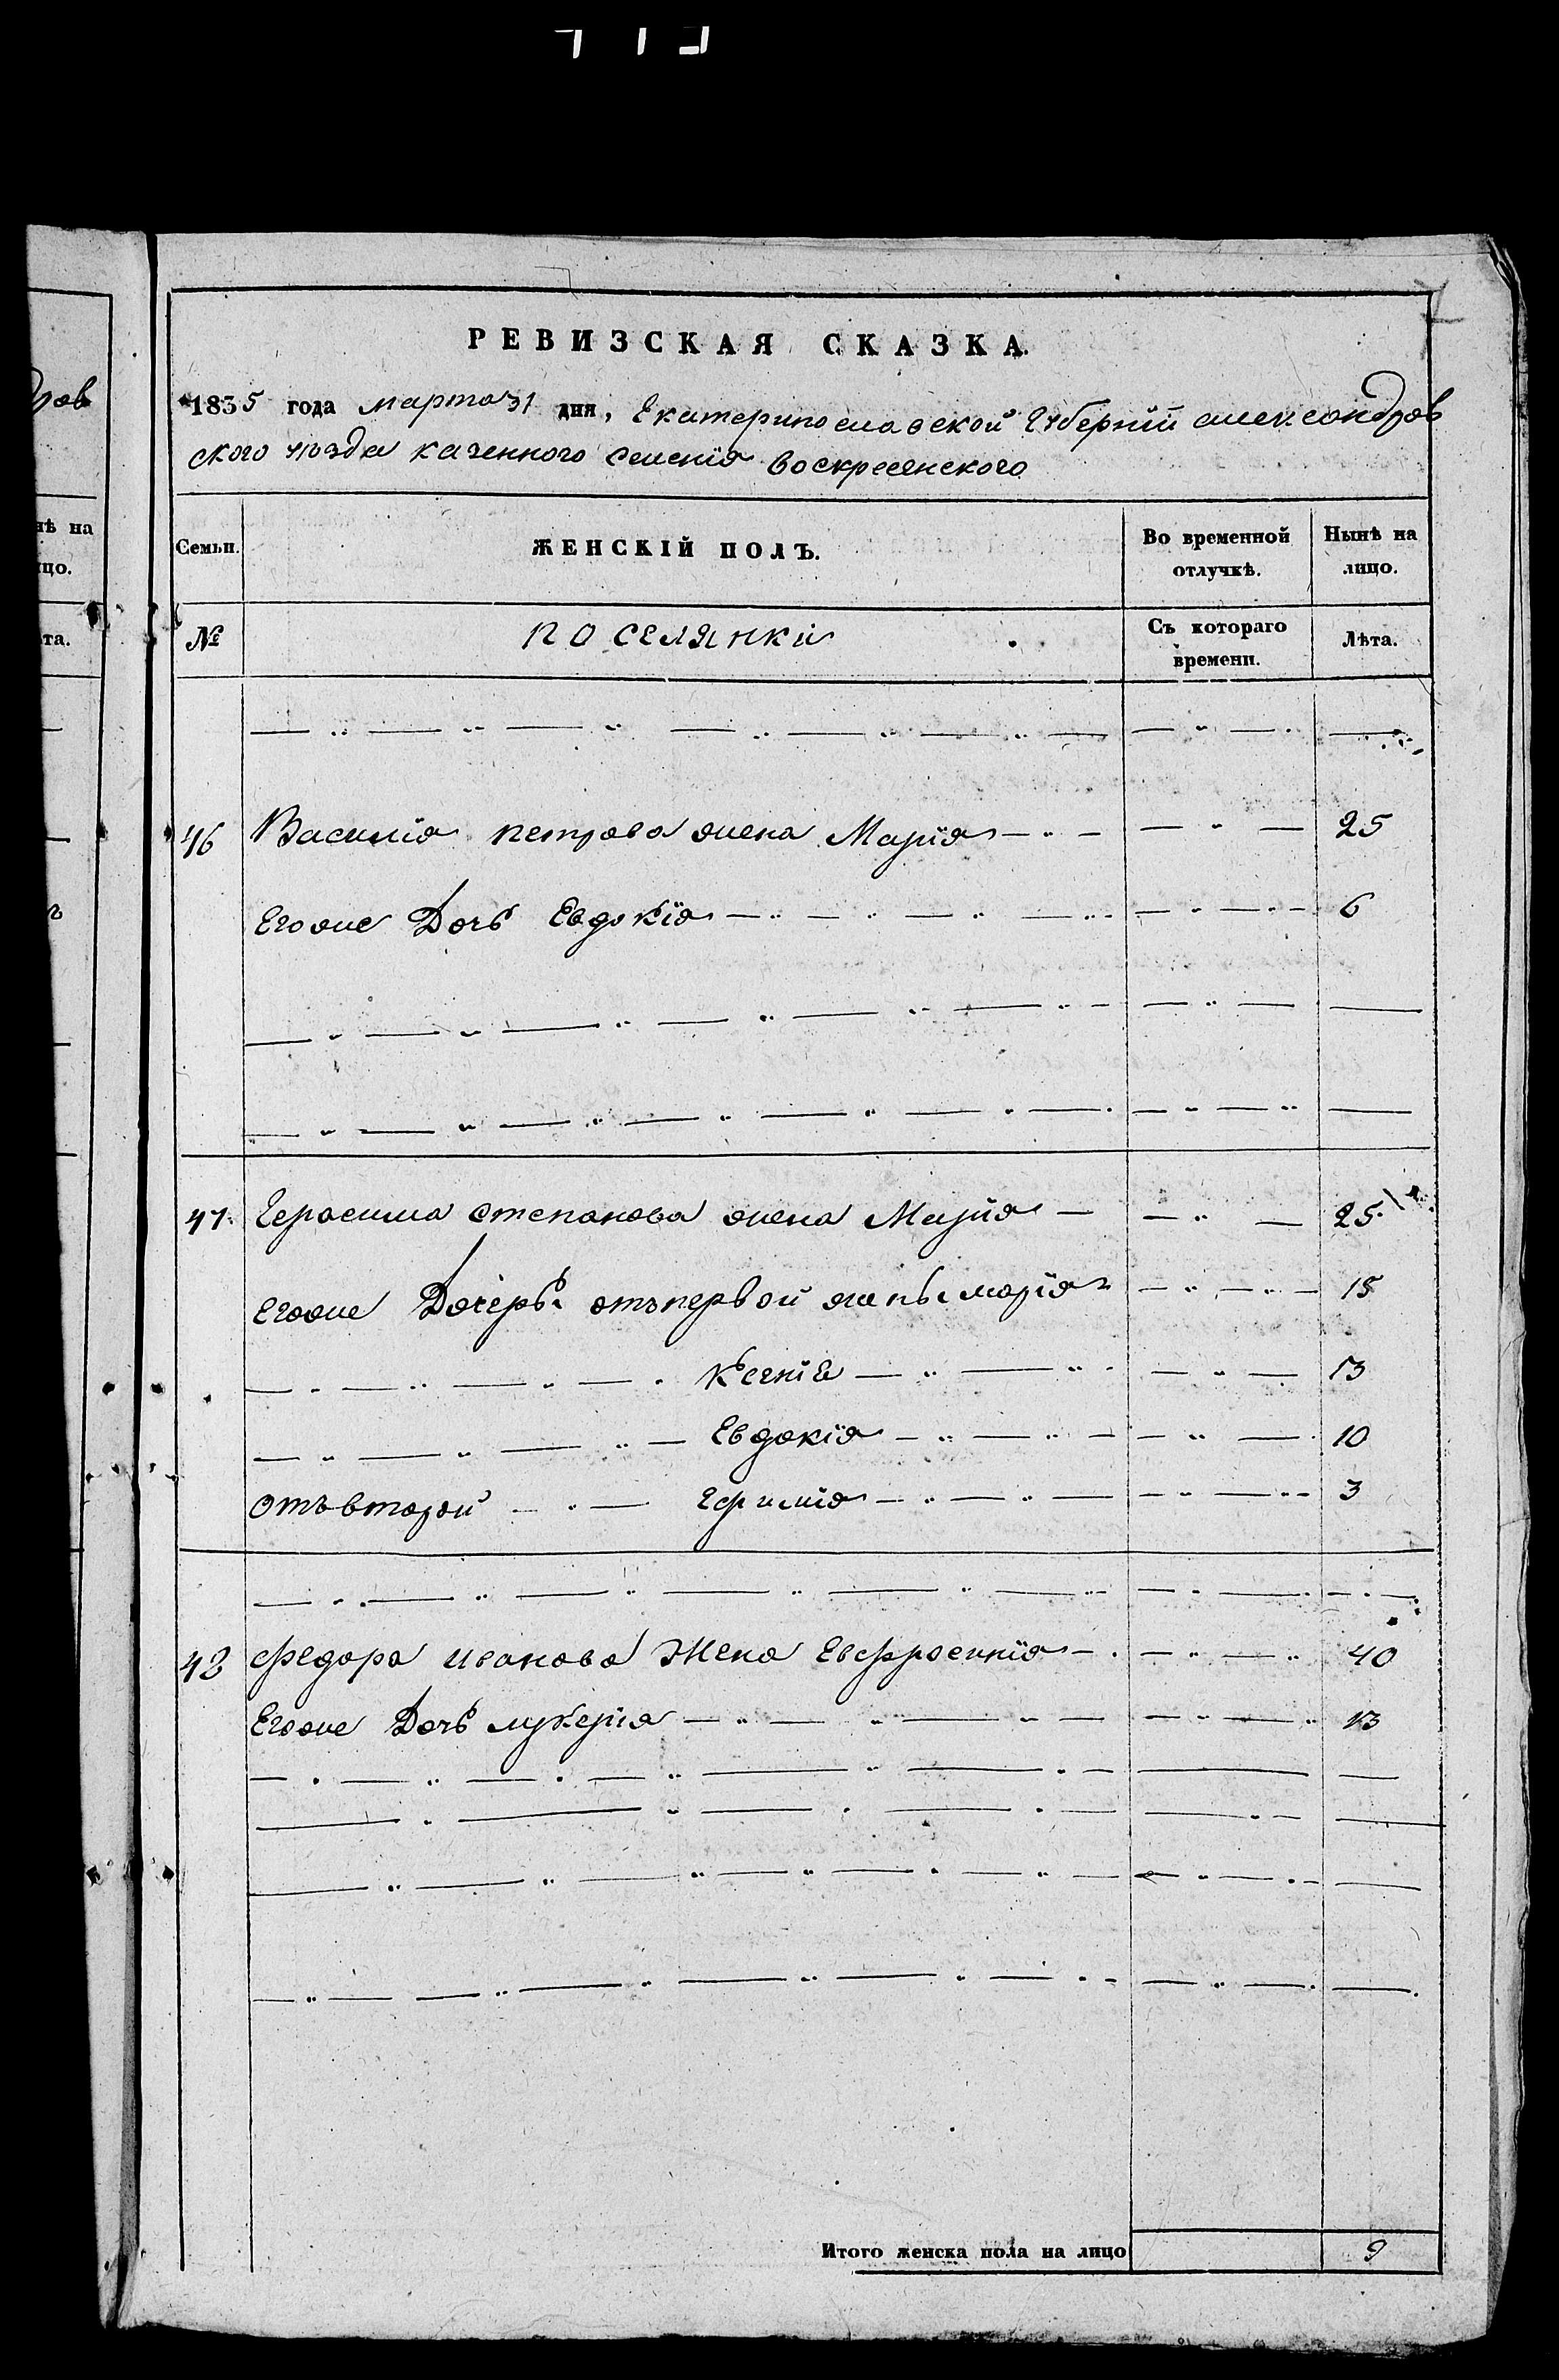 дров
нѣ на
цо.
та.
РЕВИЗСКАЯ СКАЗКА.
1835 года марта 31 дня, Екатеринославской Губерніи александров
ского уѣзда казенного селенія воскресенского
Семьи. ЖЕНСКІЙ ПОЛЪ. Во временной отлучкѣ. Нынѣ на лицо.
№ поселянки Съ котораго времени. Лѣта.
46 Василія петрова жена Марія 25
Егоже Дочь Евдокія 6
47 Герасима степанова жена Марія 25
Егоже Дочерь отъ первой жены марія 15
Ксенія 13
Евдокія 10
отъ второй Ефимія 3
48 Федора иванова Жена Евфросинія 40
Егоже Дочь лукерія 13
Итого женска пола на лицо 9